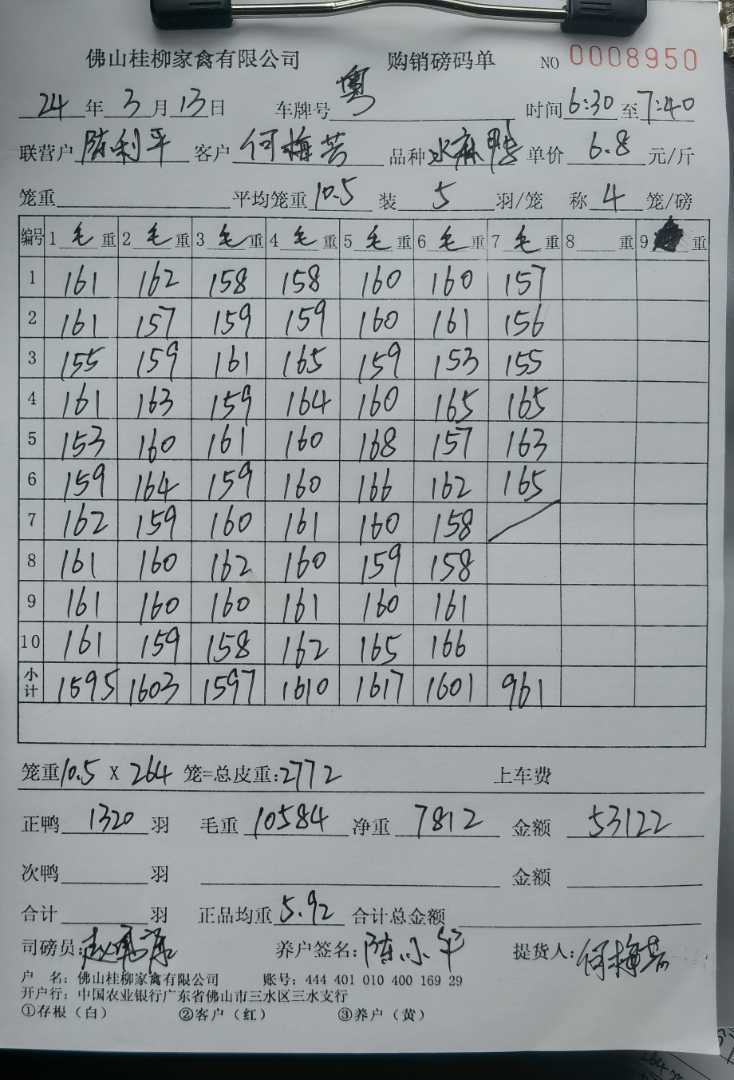 佛山桂柳家禽有限公司 购销磅码单 NO 0008950
24 年 3 月 13 日 车牌号 粤 时间 6:30 至 7:40
联营户 陈利平 客户 何梅芸 品种 水麻鸭 单价 6.8 元/斤
笼重 平均笼重 10.5 装 5 羽/笼 称 4 笼/磅
编号 1 毛 重 2 毛 重 3 毛 重 4 毛 重 5 毛 重 6 毛 重 7 毛 重 8 重 9 重
1 161 162 158 158 160 160 157
2 161 157 159 159 160 161 156
3 155 159 161 165 159 153 155
4 161 163 159 164 160 165 165
5 153 160 161 160 168 157 163
6 159 164 159 160 166 162 165
7 162 159 160 161 160 158
8 161 160 162 160 159 158
9 161 160 160 161 160 161
10 161 159 158 162 165 166
小计 1595 1603 1597 1610 1617 1601 961
笼重 10.5 X 264 笼=总皮重:2772 上车费
正鸭 1320 羽 毛重 10584 净重 7812 金额 53122
次鸭 羽 金额
合计 羽 正品均重 5.92 合计总金额
司磅员: 养户签名: 陈小华 提货人: 何梅芸
户 名: 佛山桂柳家禽有限公司 账号: 444 401 010 400 169 29
开户行: 中国农业银行广东省佛山市三水区三水支行
①存根（白） ②客户（红） ③养户（黄）